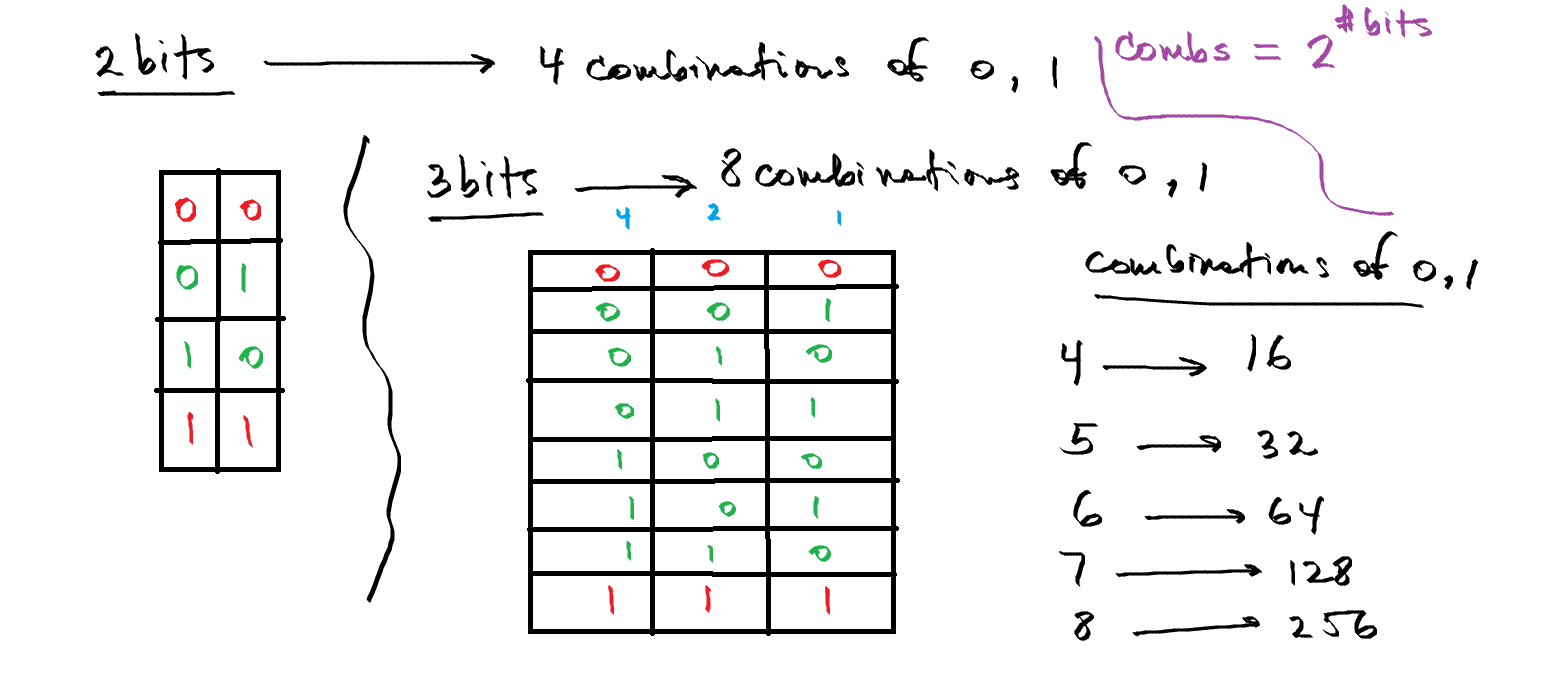 2 bits → 4 combinations of 0, 1
combs = 2^#bits
3 bits → 8 combinations of 0, 1
0 0
0 1
1 0
1 1
4 2 1
0 0 0
0 0 1
0 1 0
0 1 1
1 0 0
1 0 1
1 1 0
1 1 1
combinations of 0, 1
4 → 16
5 → 32
6 → 64
7 → 128
8 → 256